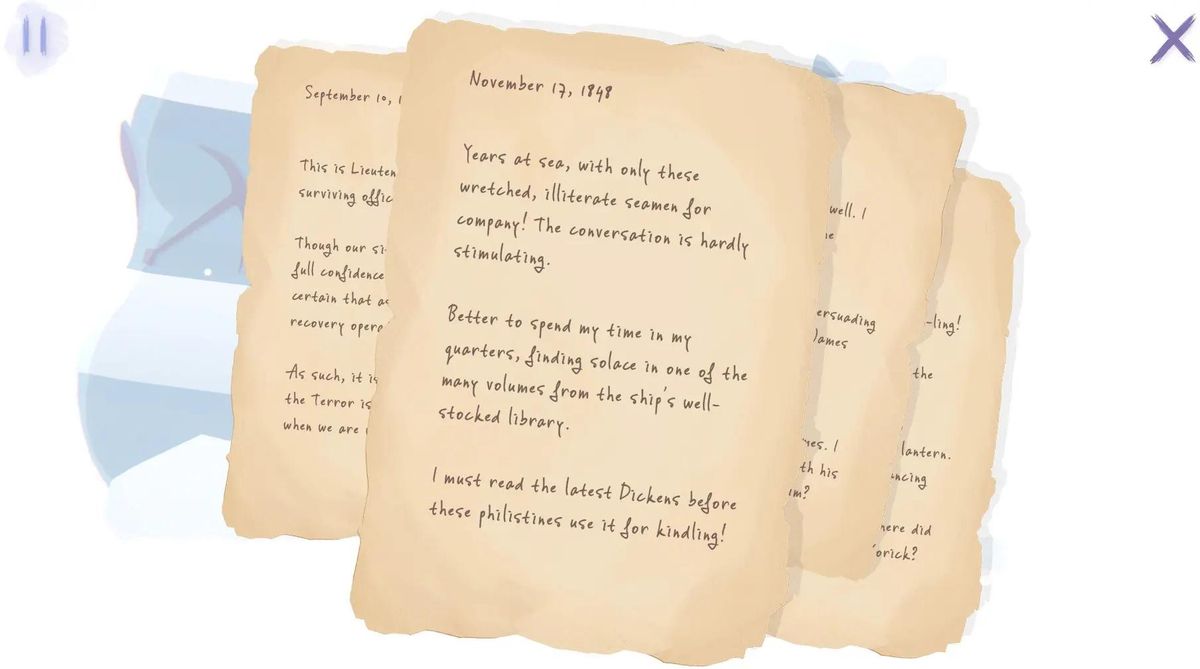 September 10,
This is Lieuten
surviving offic
Though our si
full confidence
certain that as
recovery opera
As such, it is
the Terror is
when we are
November 17, 1848
Years at sea, with only these
wretched, illiterate seamen for
company! The conversation is hardly
stimulating.
Better to spend my time in my
quarters, finding solace in one of the
many volumes from the ship's well-
stocked library.
I must read the latest Dickens before
these philistines use it for kindling!
well. I
ersuading
James
mes. I
th his
um?
-ling!
the
lantern.
ancing
here did
Yorick?